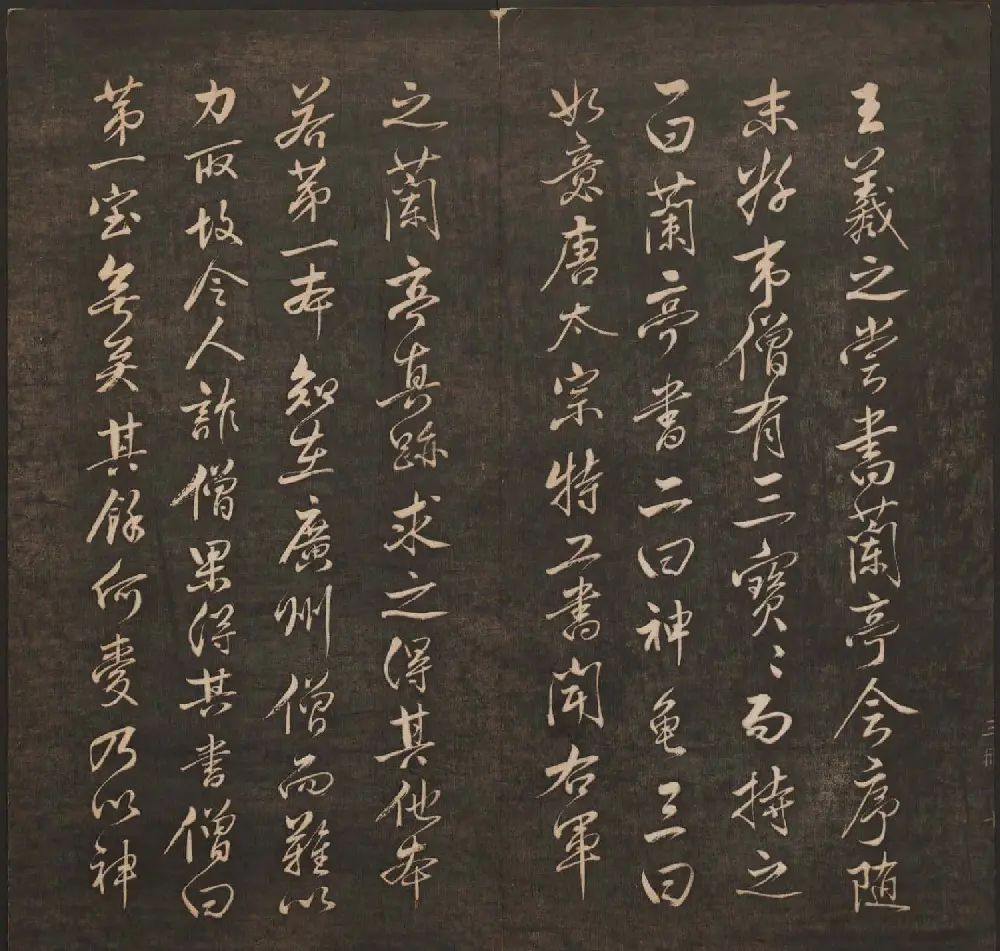 王羲之嘗書蘭亭会序隨
末好事僧有三寶〻而持之
一曰蘭亭書二曰神龜三曰
如意唐太宗特工書聞右軍
之蘭亭真跡求之得其他本
若第一本知在廣州僧而難以
力取故令人詐僧果得其書僧曰
第一宝無矣其餘何愛乃以神